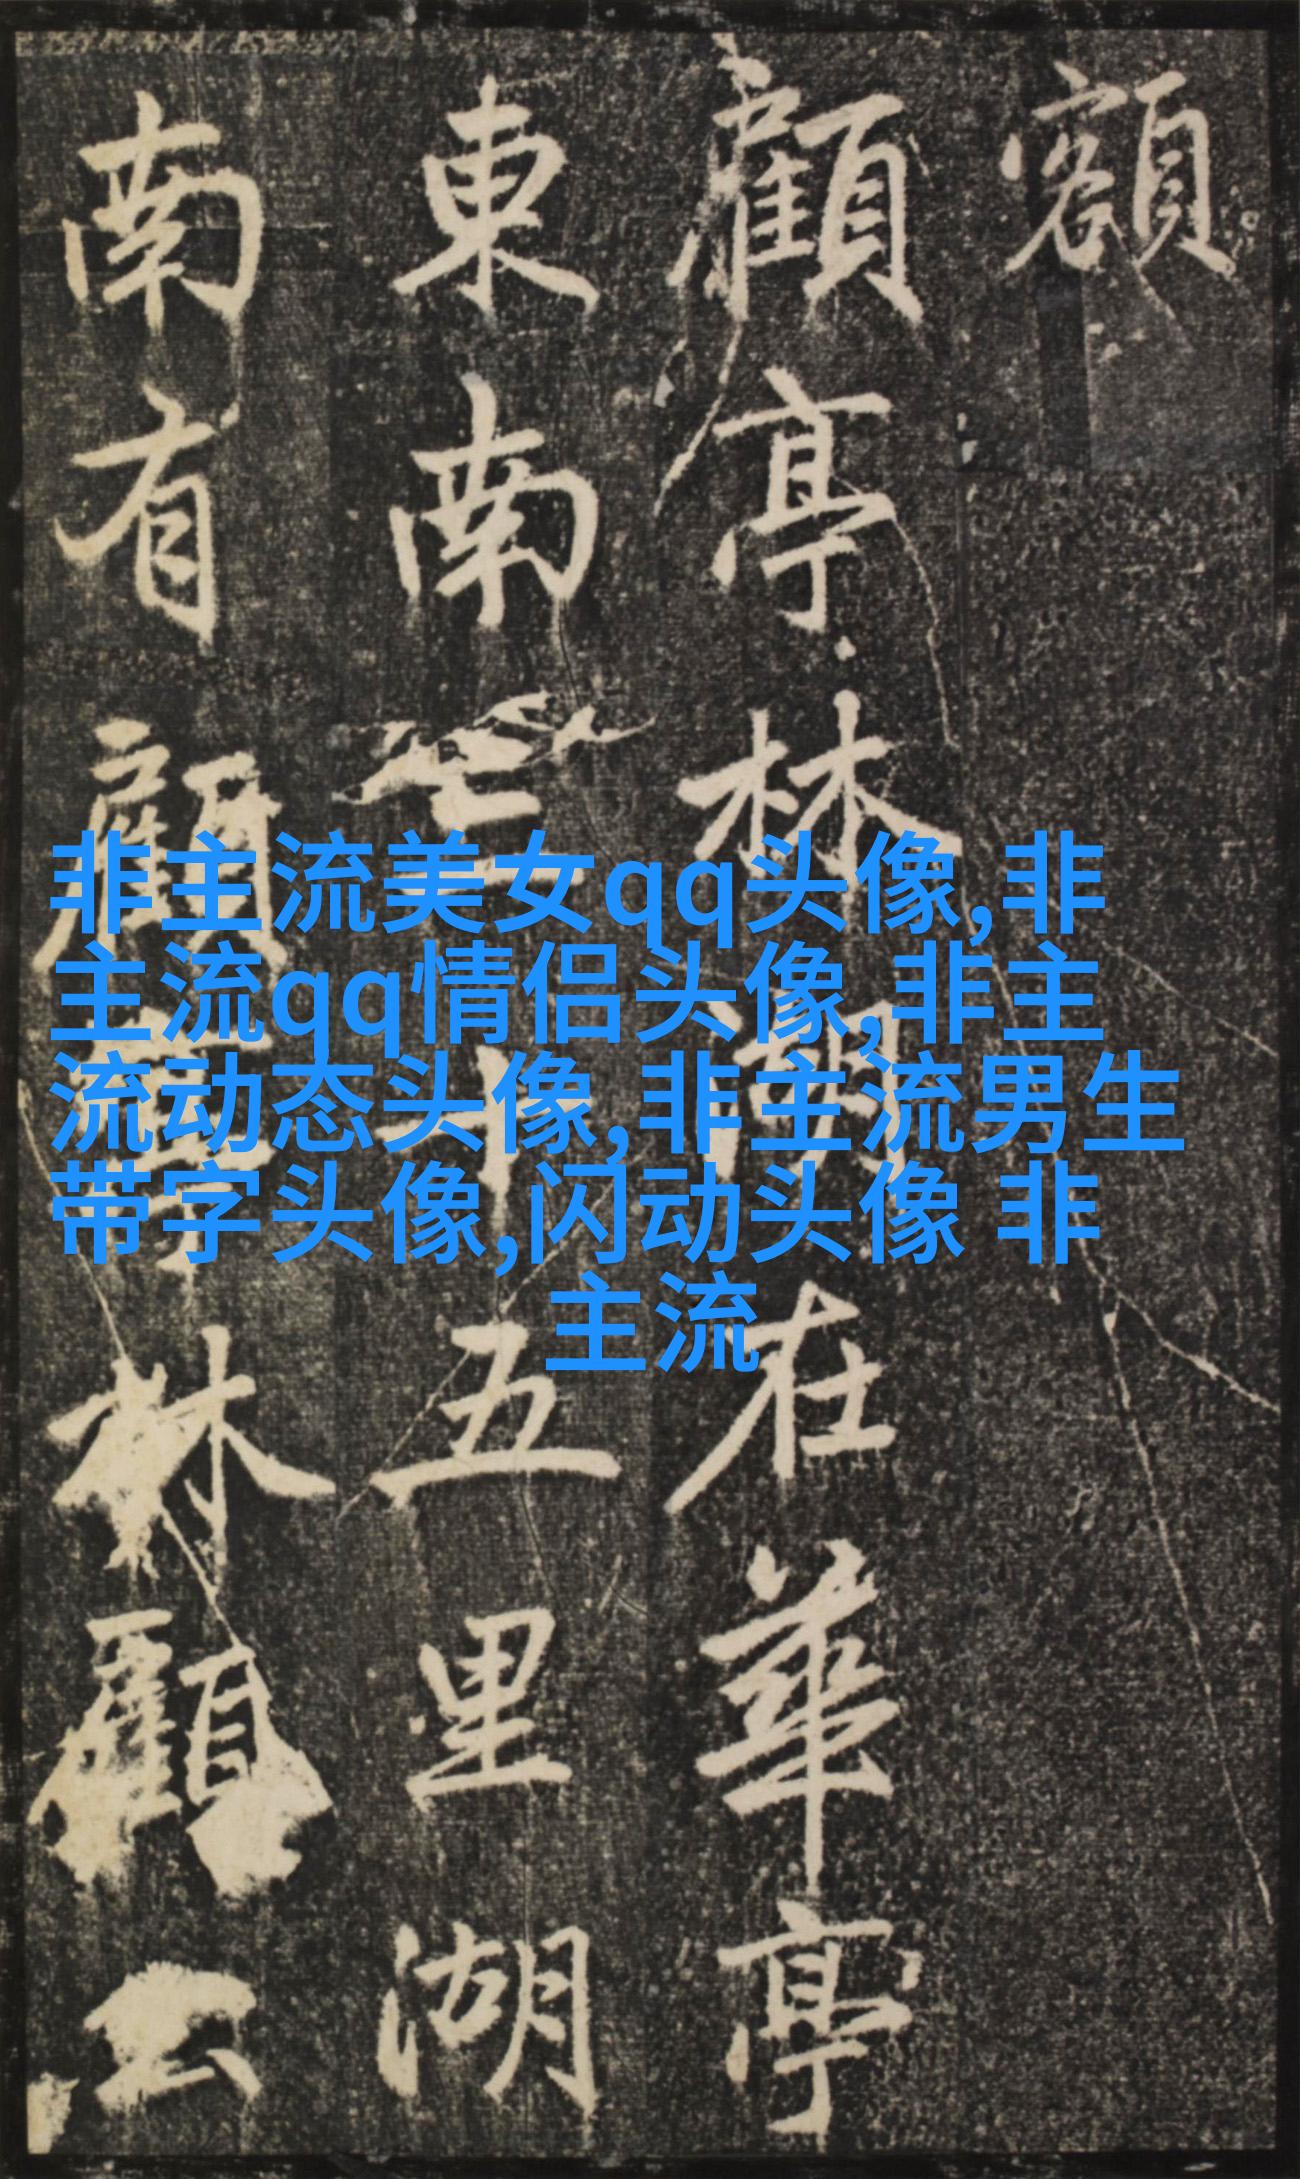 額
顧亭林湖在華亭
東南三十五里湖
南有顧亭林顧公
非主流美女qq头像,非
主流qq情侣头像,非主
流动态头像,非主流男生
带字头像,闪动头像 非
主流